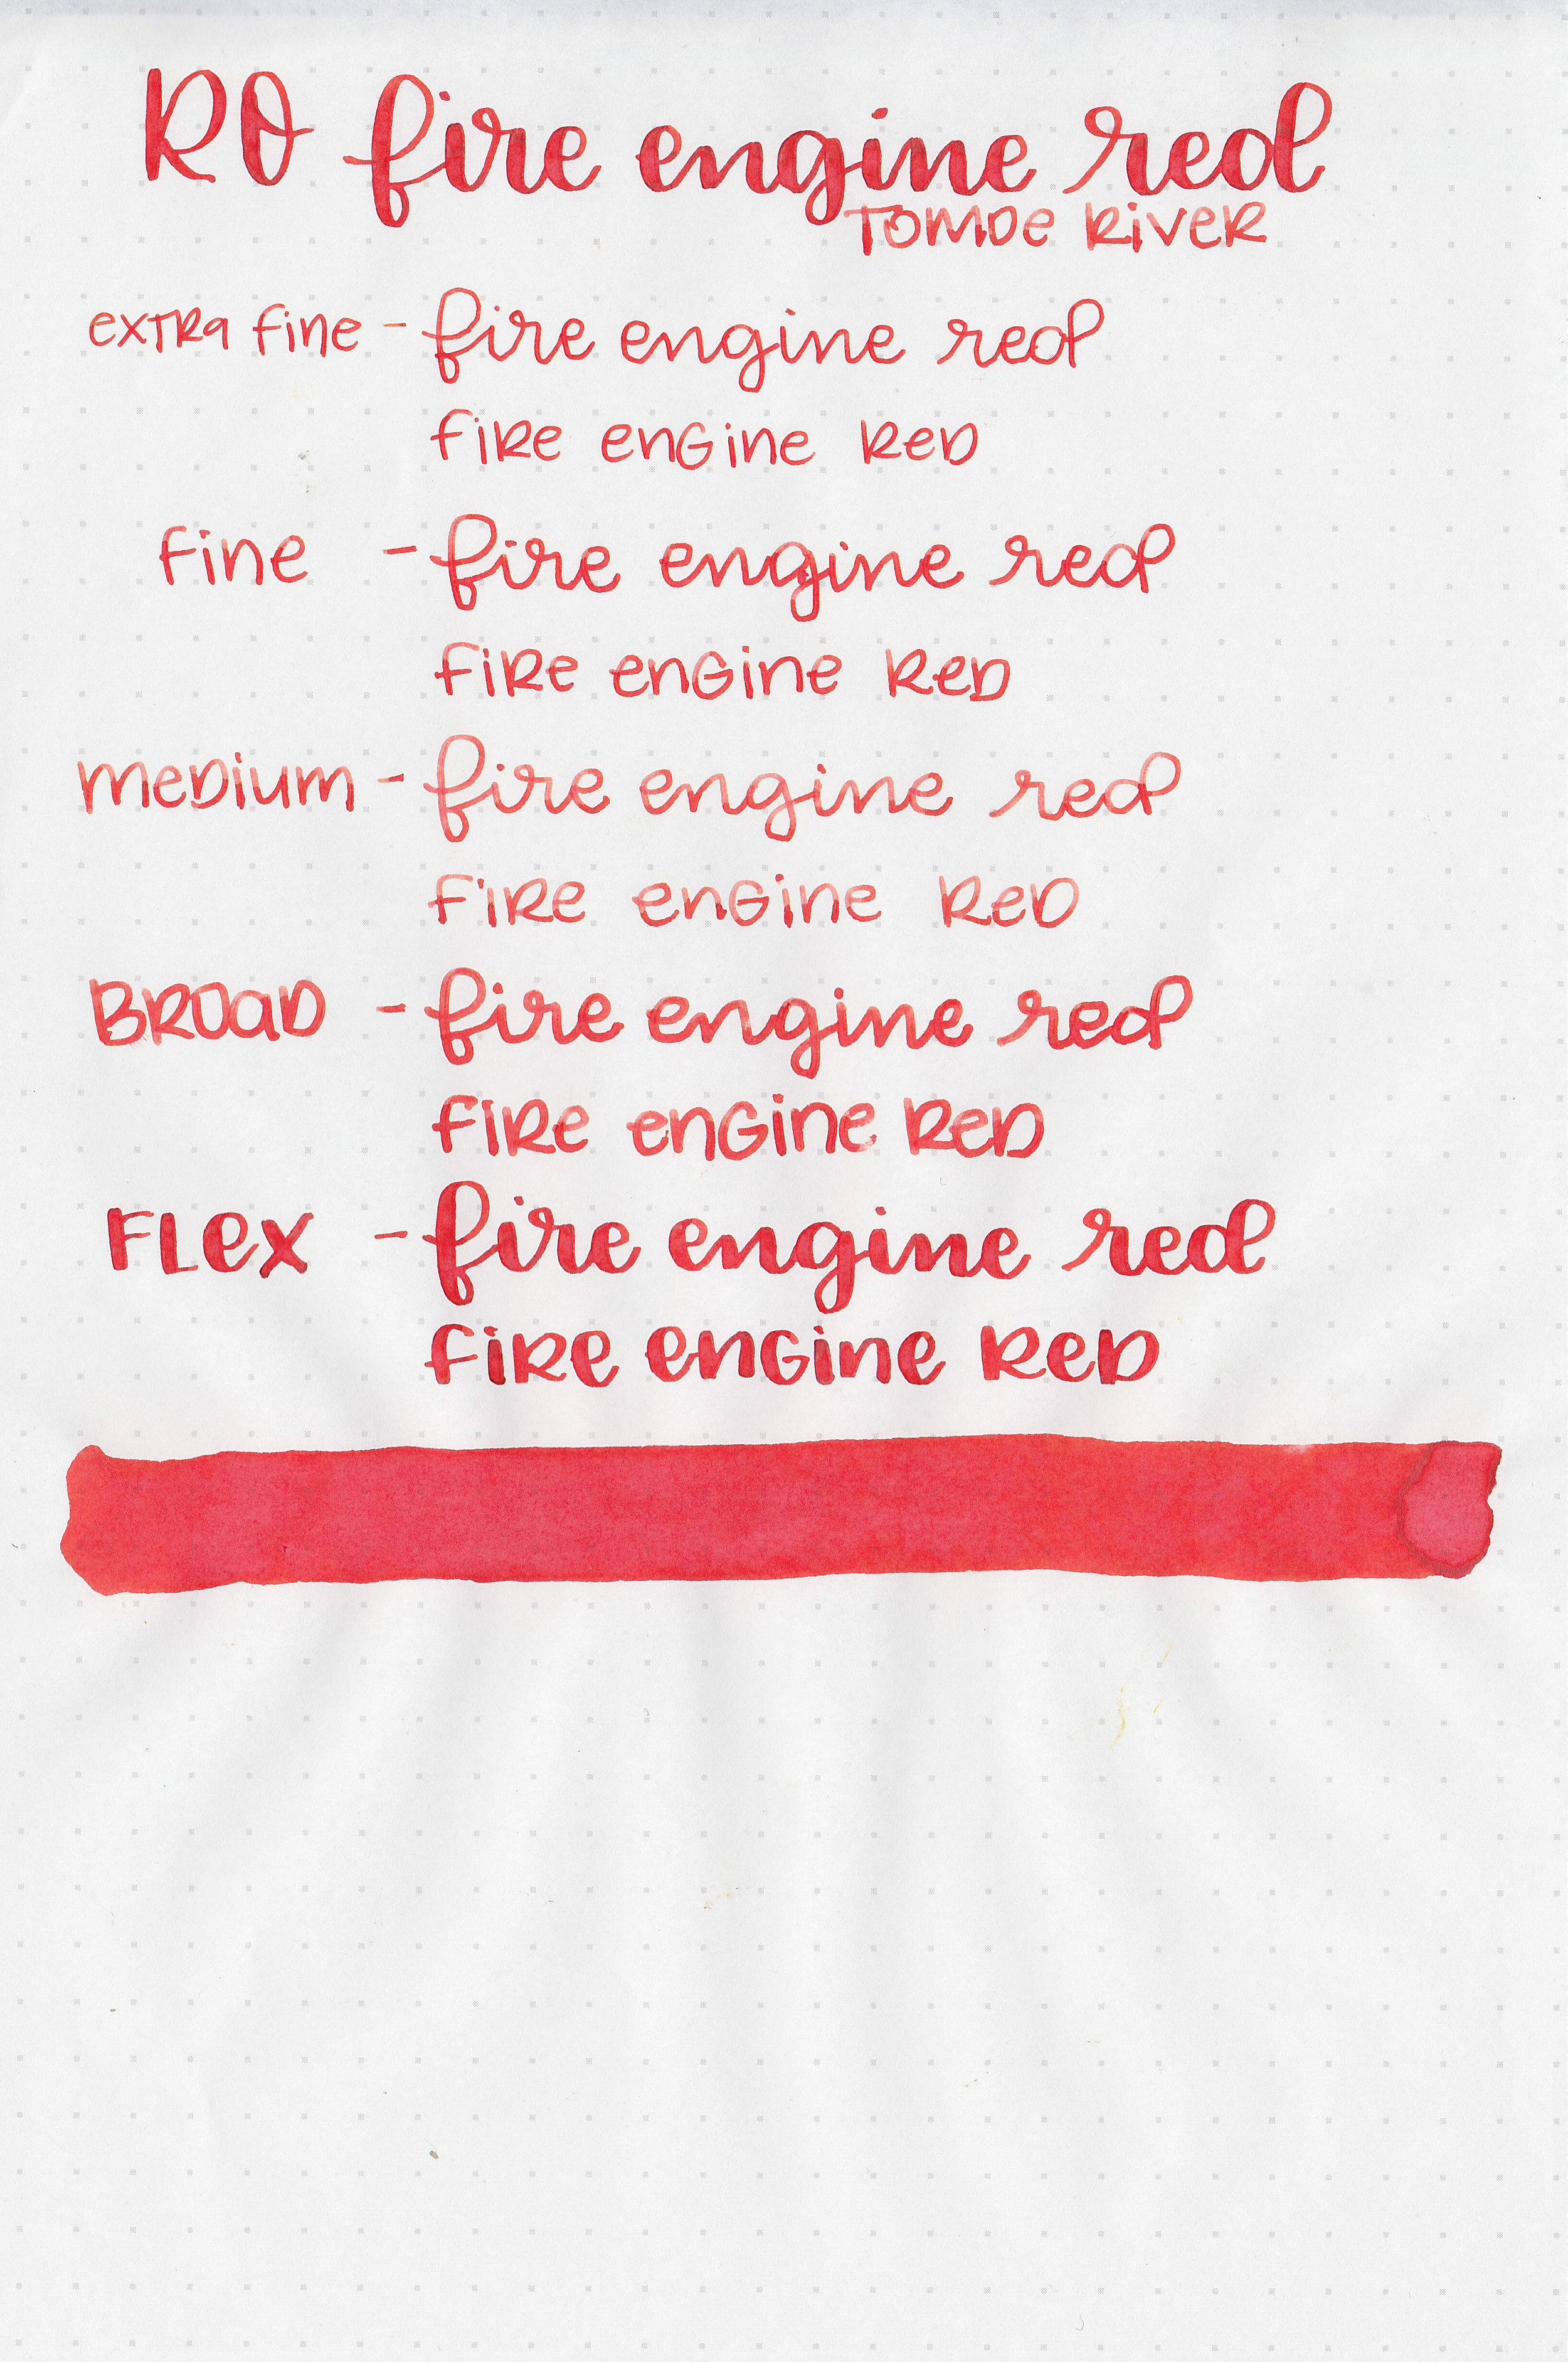 RO fire engine red
TOMOE RiVER
exTRa fine - fire engine red
fiRe enGine ReD
fine - fire engine red
fiRe enGine ReD
meDium - fire engine red
fiRe enGine ReD
BROaD - fire engine red
fiRe enGine ReD
FLex - fire engine red
fiRe enGine ReD